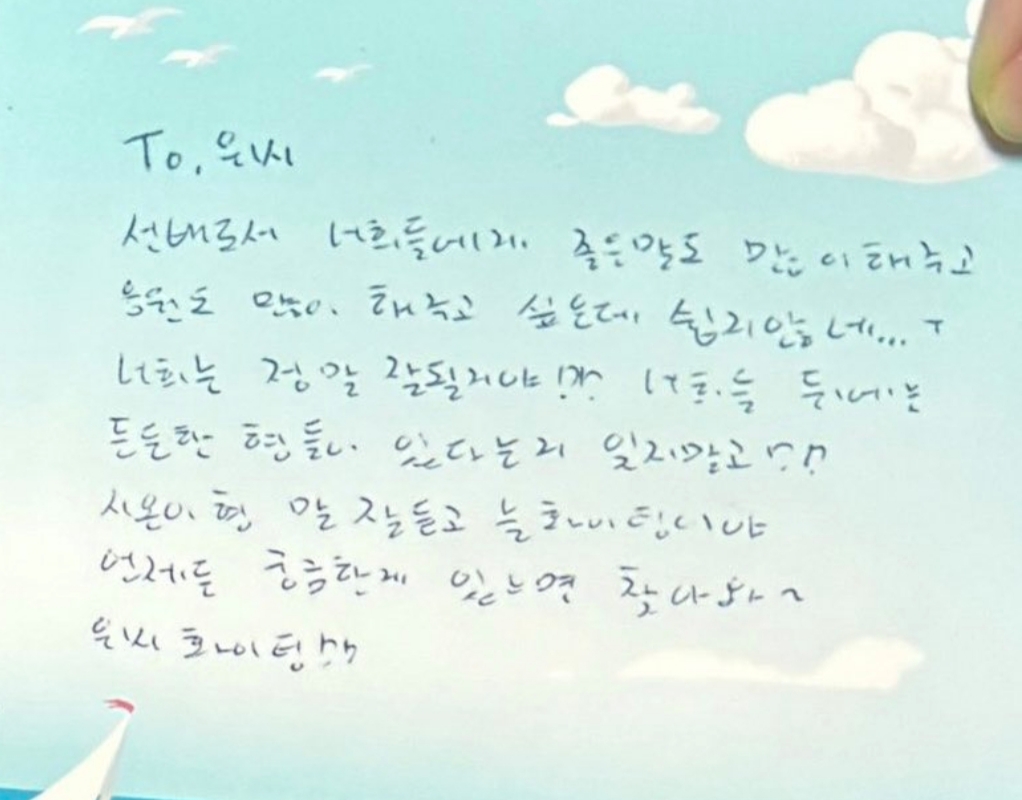 To. 위시
선배로서 너희들에게 좋은말도 많이 해주고
응원도 많이 해주고 싶은데 쉽지않네... ㅜ
너희는 정말 잘될거야!?? 너희들 뒤에는
든든한 형들이 있다는거 잊지말고!?!?
시온이 형 말 잘듣고 늘 화이팅이야
언제든 궁금한게 있으면 찾아와~
위시 화이팅!?!?